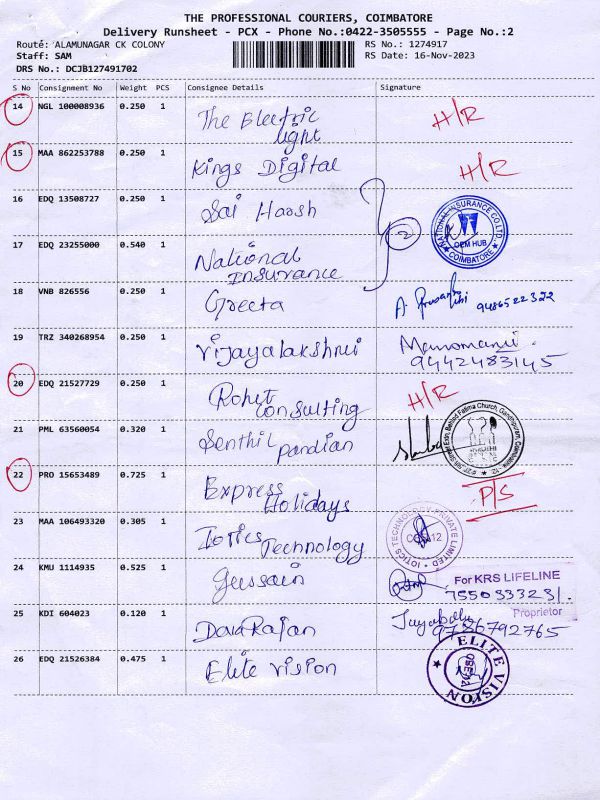 THE PROFESSIONAL COURIERS, COIMBATORE
Delivery Runsheet - PCX - Phone No.:0422-3505555 - Page No.:2
Route: ALAMUNAGAR CK COLONY RS No.: 1274917
Staff: SAM RS Date: 16-Nov-2023
DRS No.: DCJB127491702
S No Consignment No Weight PCS Consignee Details Signature
14 NGL 100008936 0.250 1 The Electric H/R
light
15 MAA 862253788 0.250 1 Kings Digital H/R
16 EDQ 13508727 0.250 1 Sai Harsh
NATIONAL INSURANCE CO LTD
OEM HUB
COIMBATORE
17 EDQ 23255000 0.540 1 National
Insurance
18 VNB 826556 0.250 1 Greeta 9486522322
19 TRZ 340268954 0.250 1 Vijayalakshmi Manomani
9442483145
20 EDQ 21527729 0.250 1 Rohit H/R
Consulting
21 PML 63560054 0.320 1 Senthil
Pandian
Behind Fatima Church, Gandhipuram, Coimbatore - 12
22 PRO 15653489 0.725 1 Express P/S
Holidays
23 MAA 106493320 0.305 1 Iotics
Technology
IOTICS TECHNOLOGY PRIVATE LIMITED
24 KMU 1114935 0.525 1 Gussain For KRS LIFELINE
7550333231.
Proprietor
25 KDI 604023 0.120 1 DevaRajan Jayabalu
9786792765
26 EDQ 21526384 0.475 1 Elite Vision
ELITE VISION